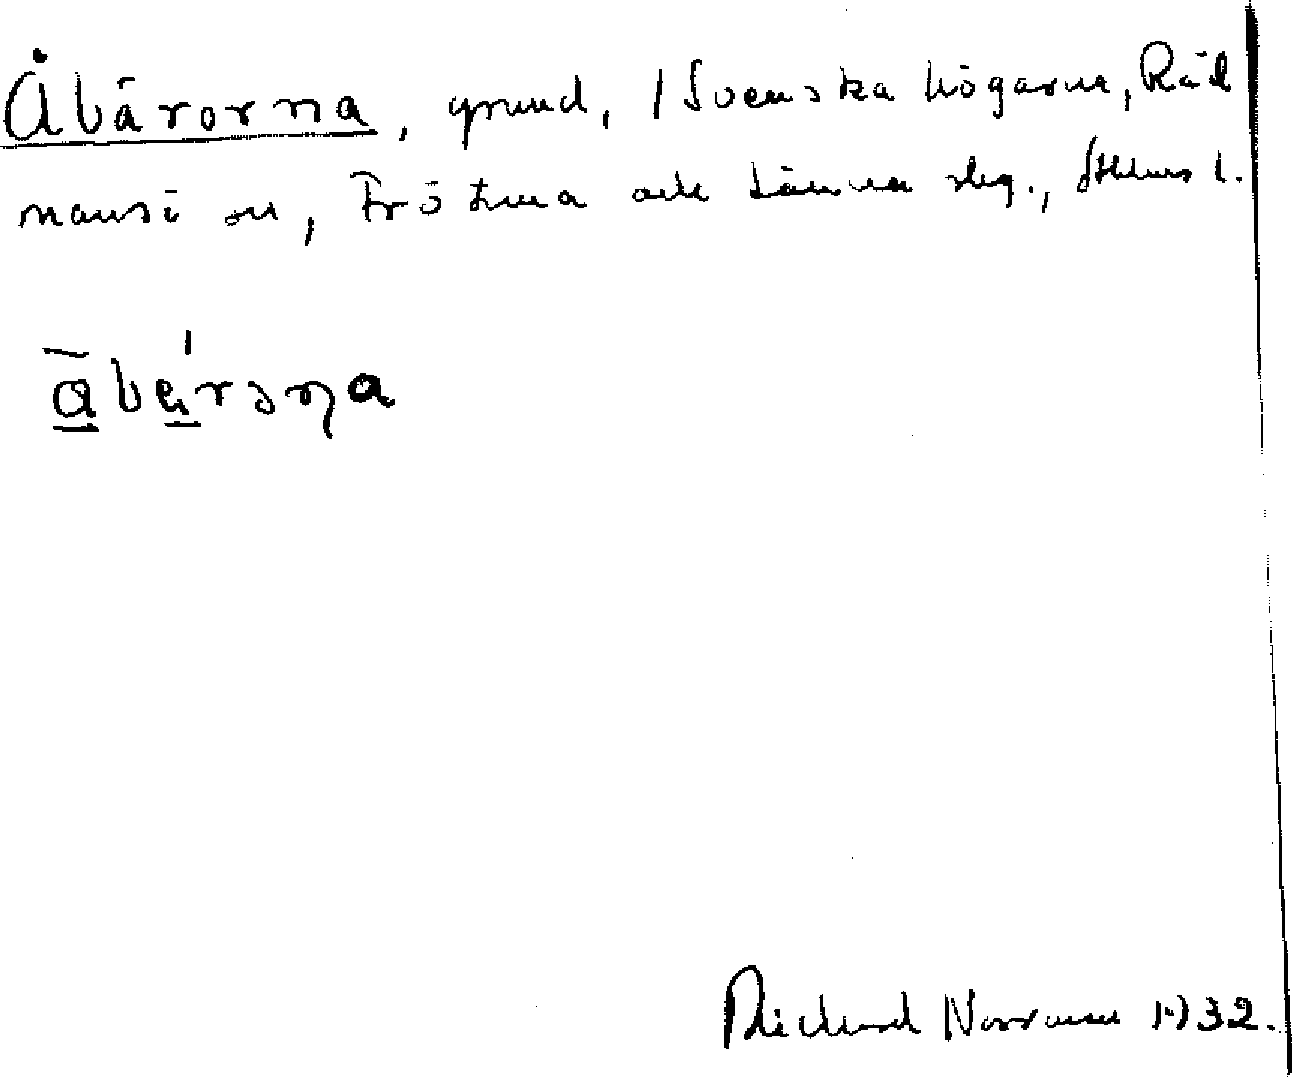 Åbärorna, grund, / Svenska högarna, Råd
mansö sn, Frötuna och Länna skg., Sthlms l.
a̲̅bé̲rɔɳa
Richard Norrman 1932.